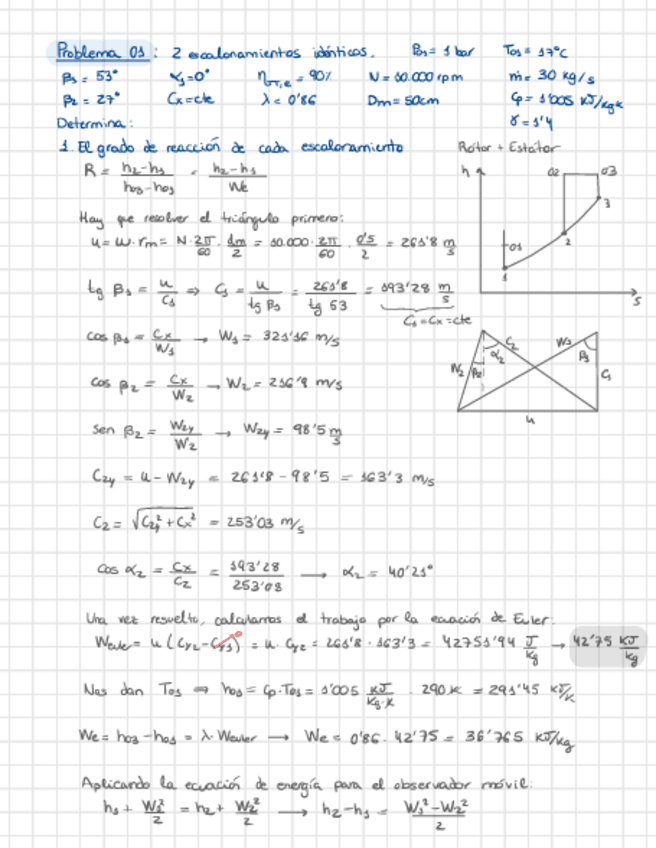 Problema 01: 2 escalonamientos idénticos. P01 = 1 bar T01 = 17°C
β1 = 53° α1 = 0° ηTT,e = 90% N = 10.000 rpm ṁ = 30 kg/s
β2 = 27° Cx = cte λ = 0'86 Dm = 50cm Cp = 1'005 KJ/kgK
γ = 1'4
Determina:
1. El grado de reacción de cada escalonamiento Rotor + Estator
R = (h2-h1)/(h03-h01) = (h2-h1)/We
h 02 03
3
01 2
1
s
Hay que resolver el triángulo primero:
u = ω·rm = N·2π/60 · dm/2 = 10.000 · 2π/60 · 0'5/2 = 261'8 m/s
tg β1 = u/C1 ⇒ C1 = u/tg β1 = 261'8/tg 53 = 193'28 m/s
C1 = Cx = cte
cos β1 = Cx/W1 → W1 = 321'16 m/s
W2 β2 α2 C2 W1 β1 C1
u
cos β2 = Cx/W2 → W2 = 216'9 m/s
sen β2 = W2y/W2 → W2y = 98'5 m/s
C2y = u - W2y = 261'8 - 98'5 = 163'3 m/s
C2 = √(C2y² + Cx²) = 253'03 m/s
cos α2 = Cx/C2 = 193'28/253'03 → α2 = 40'21°
Una vez resuelto, calculamos el trabajo por la ecuación de Euler:
Weuler = u (Cy2 - Cy1) = u · Cy2 = 261'8 · 163'3 = 42751'94 J/kg → 42'75 KJ/kg
0
Nos dan T01 ⇒ h01 = Cp·T01 = 1'005 KJ/Kg·K · 290 K = 291'45 KJ/K
We = h03 - h01 = λ·Weuler → We = 0'86 · 42'75 = 36'765 KJ/kg
Aplicando la ecuación de energía para el observador móvil:
h1 + W1²/2 = h2 + W2²/2 → h2 - h1 = (W1² - W2²)/2